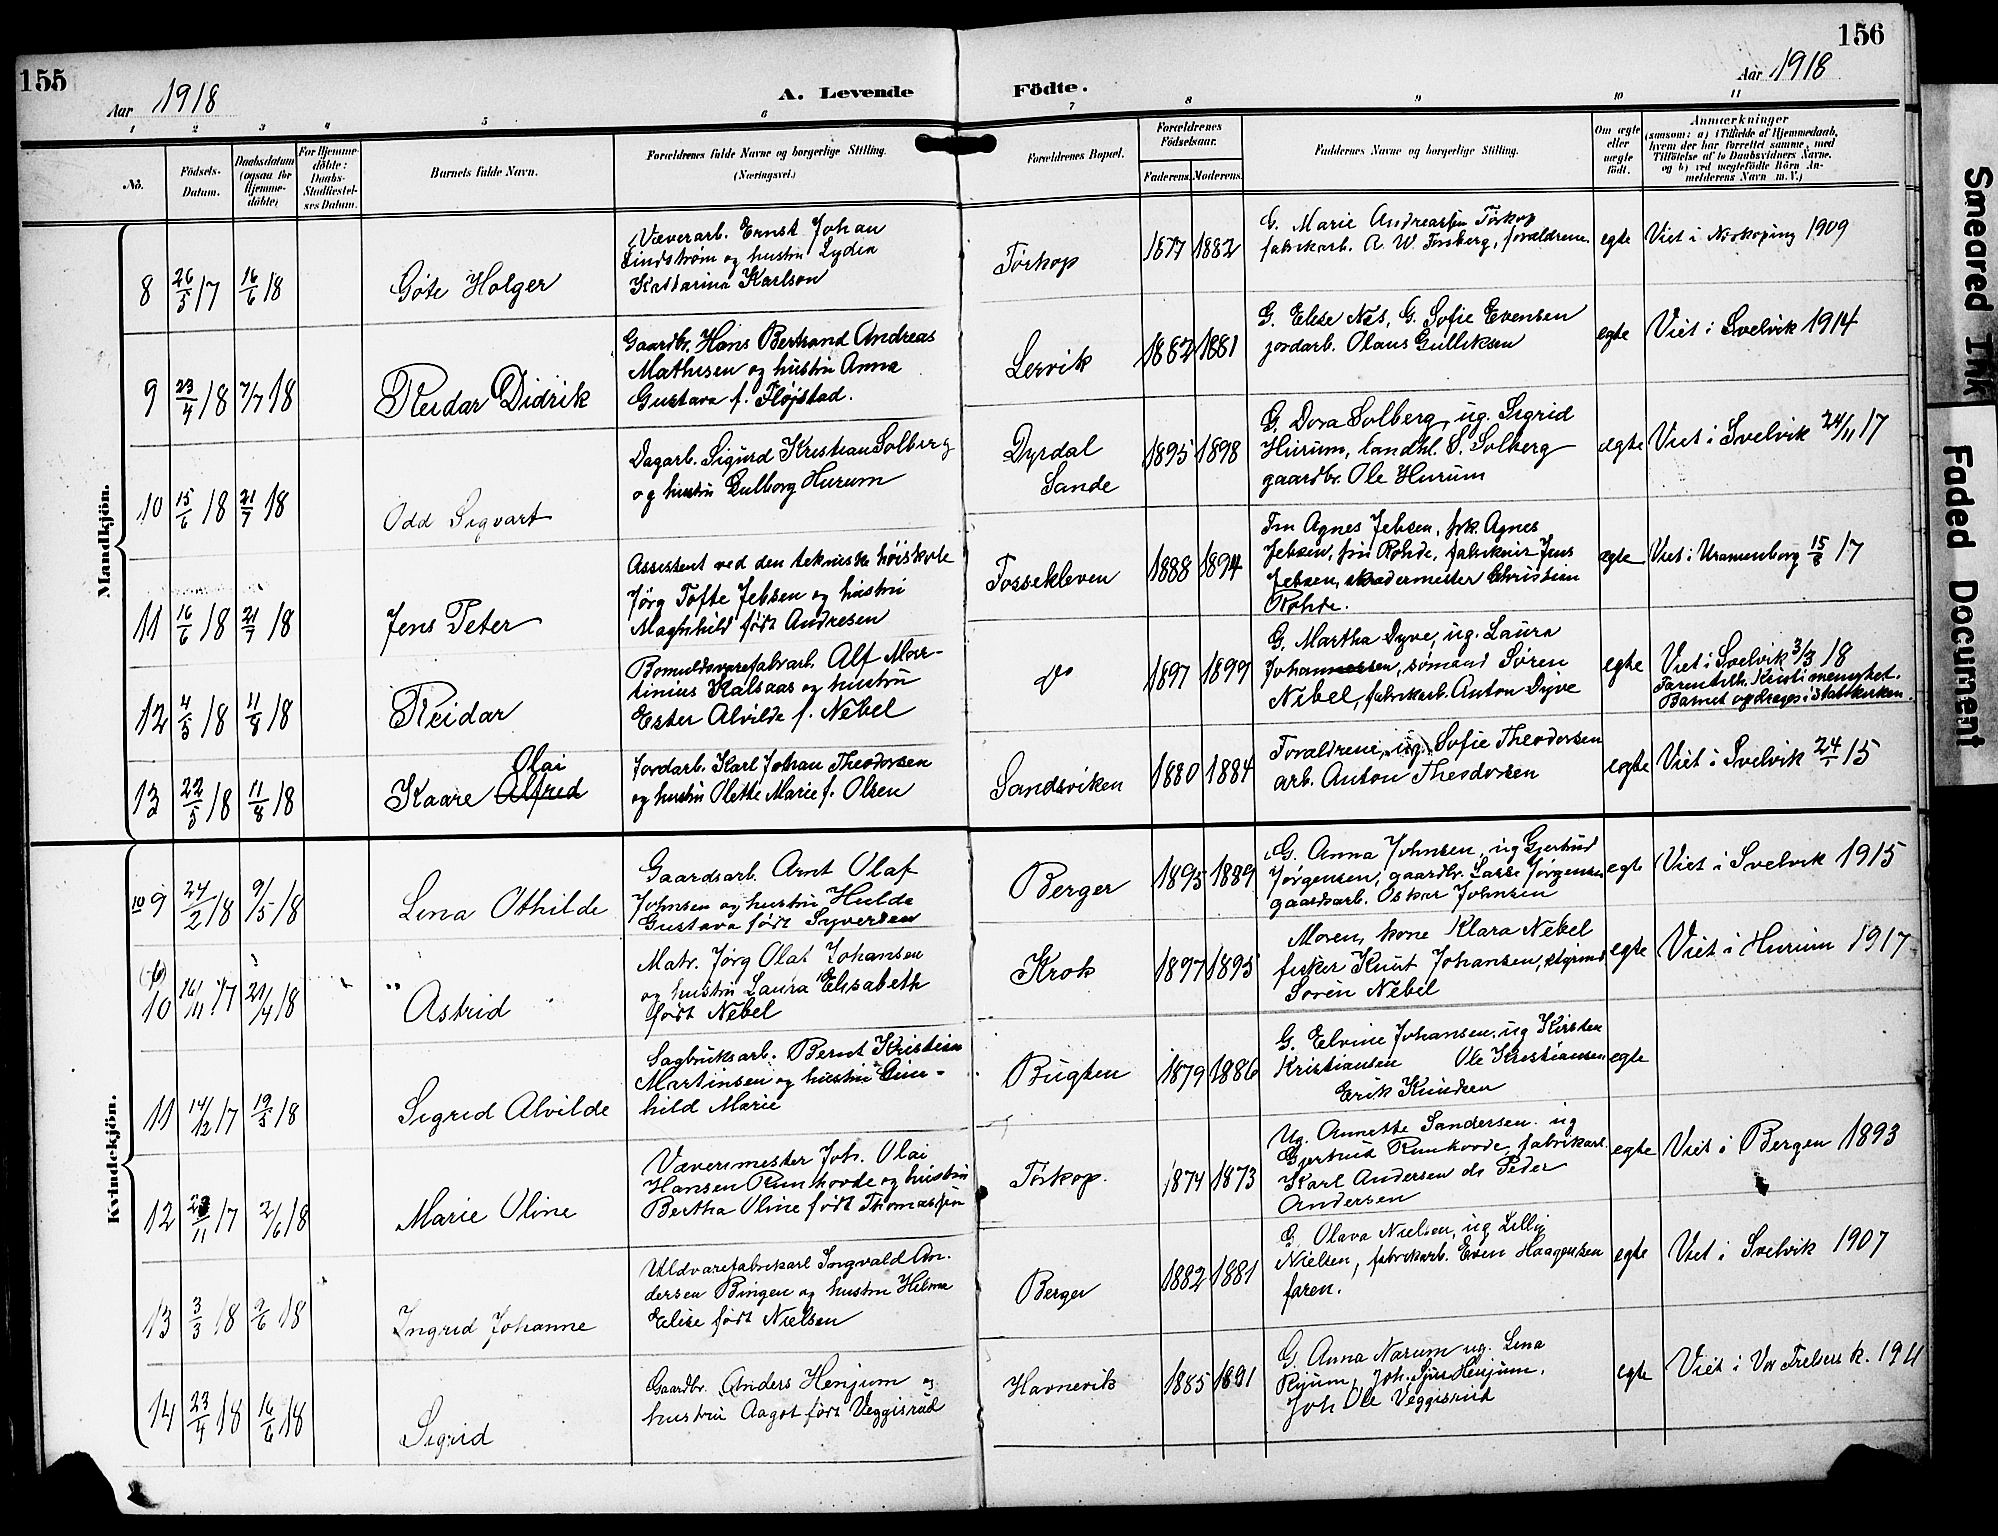 155
Aar 1918
A. Levende
Födte.
156
Aar 1918
1 2 3 4 5 6 7 8 9 10 11
No.
Födsels-
Datum.
Daabsdatum
(ogsaa for
Hjemme-
döbte)
For Hjemme-
döbte:
Daabs-
Stadfæstel-
ses Datum.
Barnets fulde Navn.
Forældrenes fulde Navne og borgerlige Stilling.
(Næringsvei.)
Forældrenes Bopæl.
Forældrenes
Födselsaar.
Faderens. Moderens.
Faddernes Navne og borgerlige Stilling.
Om ægte
eller
uægte
födt.
Anmærkninger
(saasom: a) i Tilfælde af Hjemmedaab,
hvem der har forrettet samme, med
Tilföielse af to Daabsvidners Navne.
og b) ved uægtefödte Börn An-
melderens Navn m. V.)
Mandkjön.
8 26/5 17 16/6 18 Göte Holger
Væverarb. Ernst Johan
Lindström og hustru Lydia
Katharina Karlson
Törkop 1877 1882
G. Marie Andreassen Törkop
fabrikarb. A. W. Forsberg, forældrene
egte Viet i Norköping 1909
9 23/4 18 7/7 18 Reidar Didrik
Gaardbr. Hans Bertrand Andreas
Mathisen og hustru Anna
Gustava f. Fløjstad.
Lervik 1882 1881
G. Elise Næs, G. Sofie Evensen
jordarb. Olaus Gulliksen
egte Viet i Svelvik 1914
10 15/6 18 21/7 18 Odd Sigvart
Dagarb. Sigurd Kristian Solberg
og hustru Gulborg Hurum
Dyrdal
Sande
1895 1898
G. Dora Solberg, ug. Sigrid
Hurum, landhl. S. Solberg
gaardbr. Ole Hurum
ægte Viet i Svelvik 24/11 17
11 16/6 18 21/7 18 Jens Peter
Assistent ved den tekniske høiskole
Jörg Tofte Jebsen og hustru
Maghihild født Andresen
Fossekleven 1888 1894
Fru Agnes Jebsen, frk. Agnes
Jebsen, fru Rohde, fabrikeier Jens
Jebsen, skrædermester Christian
Rohde.
egte Viet i Uranienborg 15/8 17
12 4/5 18 11/8 18 Reidar
Bomuldsvarefabrarb. Alf Mar-
tinius Kalsaas og hustru
Ester Alvilde f. Nebel
do 1897 1899
G. Martha Dyve, ug. Laura
Johannessen, sømand Søren
Nebel, fabrikarb. Anton Dyve
egte Viet i Svelvik 3/3 18
Faren tilh. Kristi menighet.
Barnet opdrages i statskirken.
13 22/5 18 11/8 18 Olai
Kaare Alfred
Jordarb. Karl Johan Theodorsen
og hustru Olette Marie f. Olsen
Sandsviken 1880 1884
Forældrene, ug. Sofie Theodorsen
arb. Anton Theodorsen
egte Viet i Svelvik 24/1 15
Kvindekjön.
9 24/2 18 9/5 18 Lina Othilde
Gaardsarb. Arnt Olaf
Johnsen og hustru Hulda
Gustava født Syversen
Berger 1895 1889
G. Anna Johnsen, ug Gjertrud
Jørgensen, gaardbr. Lasse Jørgensen
gaardsarb. Oskar Johnsen
egte Viet i Svelvik 1915
10 16/11 17 21/4 18 Astrid
Matr. Jörg Olaf Johansen
og hustru Laura Elisabeth
født Nebel
Krok 1897 1895
Moren, kone Klara Nebel
fisker Knut Johansen,
Søren Nebel
egte Viet i Hurum 1917
11 14/12 17 19/5 18 Sigrid Alvilde
Sagbruksarb. Bernt Kristian
Martinsen og hustru Gun-
hild Marie
Bugten 1879 1886
G. Elvine Johansen, ug Kirsten
Kristiansen Ole Kristiansen
Erik Knudsen
egte
12 17 2/6 18 Marie Oline
Vævermester Joh. Olai
Hansen Runhovde og hustru
Bertha Oline født Thomassen
Törkop. 1874 1873
Ug. Annette Sandersen. ug
Gjertrud Runhovde, fabrikarb.
Karl Andersen do Peder
Andersen
egte Viet i Bergen 1893
13 3/3 18 9/6 18 Ingrid Johanne
Uldvarefabrikarb Ingvald An-
dersen Bingen og hustru Hilma
Elise født Nielsen
Berger 1882 1881
G. Olava Nielsen, ug Lilly
Nielsen, fabrikarb. Even Haagensen
faren.
egte Viet i Svelvik 1907
14 23/4 18 16/6 18 Sigrid
Gaardbr. Anders Henjum og
hustru Aagot født Veggisrud
Havnevik 1885 1891
G. Anna Narum ug. Lina
Ryum, Joh. Henjum,
Joh Ole Veggisrud
egte Viet i Vor Frelsers k. 1911
Smeared Ink
Faded Document